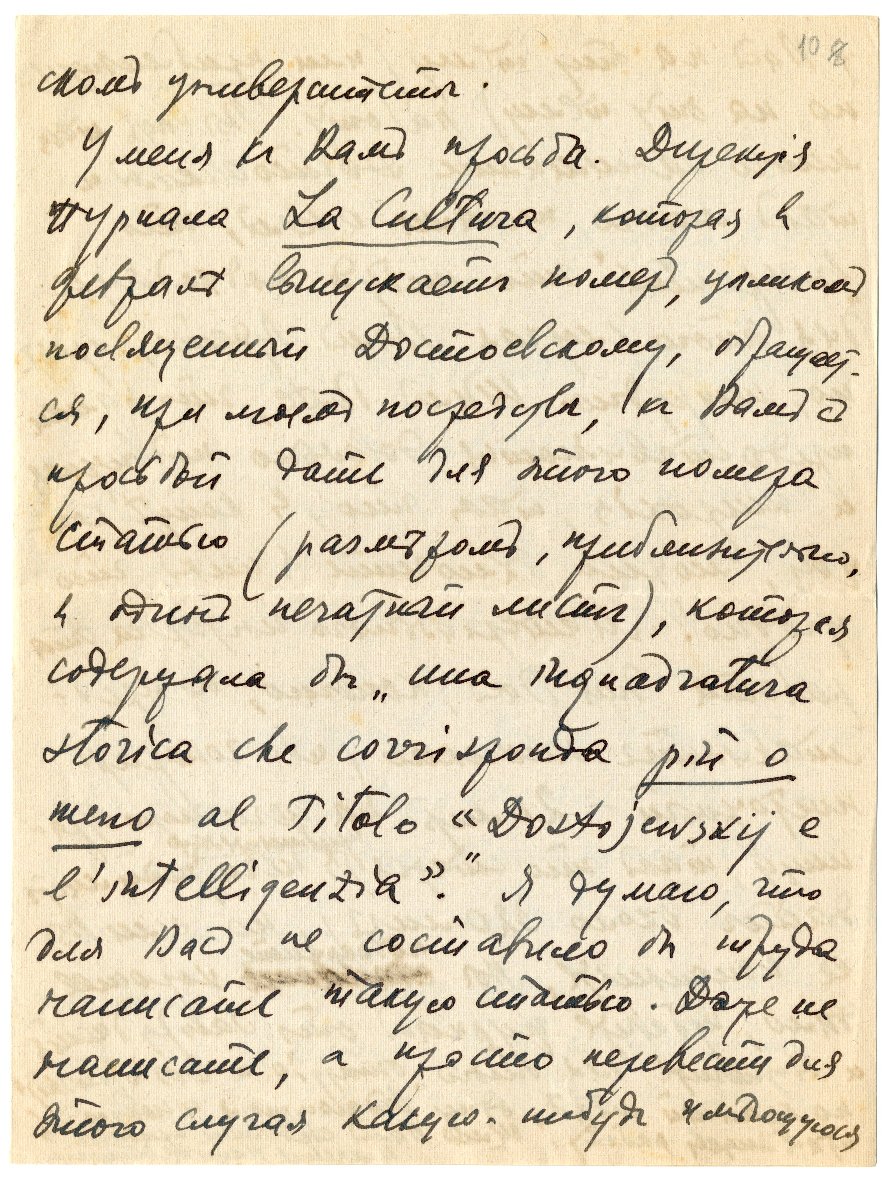 108
скомъ университетѣ.
У меня къ Вамъ просьба. Дирекція
журнала La Cultura, которая въ
февралѣ выпускаетъ номеръ, цѣликомъ
посвященный Достоевскому, обращает-
ся, при моемъ посредствѣ, къ Вамъ съ
просьбой дать для этого номера
статью (размѣромъ, приблизительно,
въ одинъ печатный листъ), которая
содержала бы „una inquadratura
storica che corrisponda più o
meno al titolo “Dostojewskij e
l'intelligenzia”.” Я думаю, что
для Васъ не составило бы труда
написать такую статью. Даже не
написать, а просто перевести для
этого случая какую-нибудь имѣющуюся